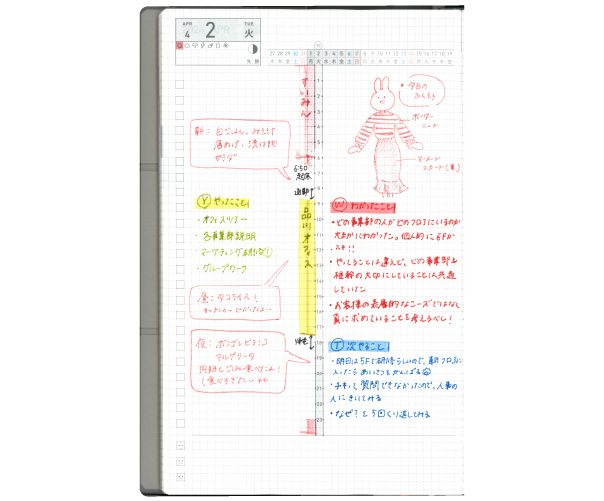 APR
4
2
TUE
火
先勝
27 28 29 30 31 1 2 3 4 5 6 7 8 9 10 11 12 13 14 15 16 17 18 19
水 木 金 土 日 月 火 水 木 金 土 日 月 火 水 木 金 土 日 月 火 水 木 金
すいみん
今日の
ふくそう
ボーダー
ニット
マーメード
スカート(黒)
朝:白ごはん、みそ汁
厚あげ、漬け物
サラダ
6:30
起床
通勤
Y やったこと
・オフィスツアー
・各事業部説明
・マーケティング研修①
・グループワーク
品川オフィス
W わかったこと
・どの事業部の人がどのフロアにいるのか
大まかにわかった。個人的に6Fが
スキ!!
・やってることは違えど、どの事業部も
根幹の大切にしていることは共通
していた
・お客様の表層的なニーズではなく
真に求めていることを考えるべし!
昼:タコライス!
夜:ボンゴレビアンコ
マルゲリータ
同期とごはん食べたよー!
(食べすぎた
帰宅
T 次やること
・明日は5Fで研修らしいので、朝フロアに
入ったらあいさつをがんばる
・チキって質問できなかったので、人事の
人にきいてみる
・なぜ?を5回くり返してみる